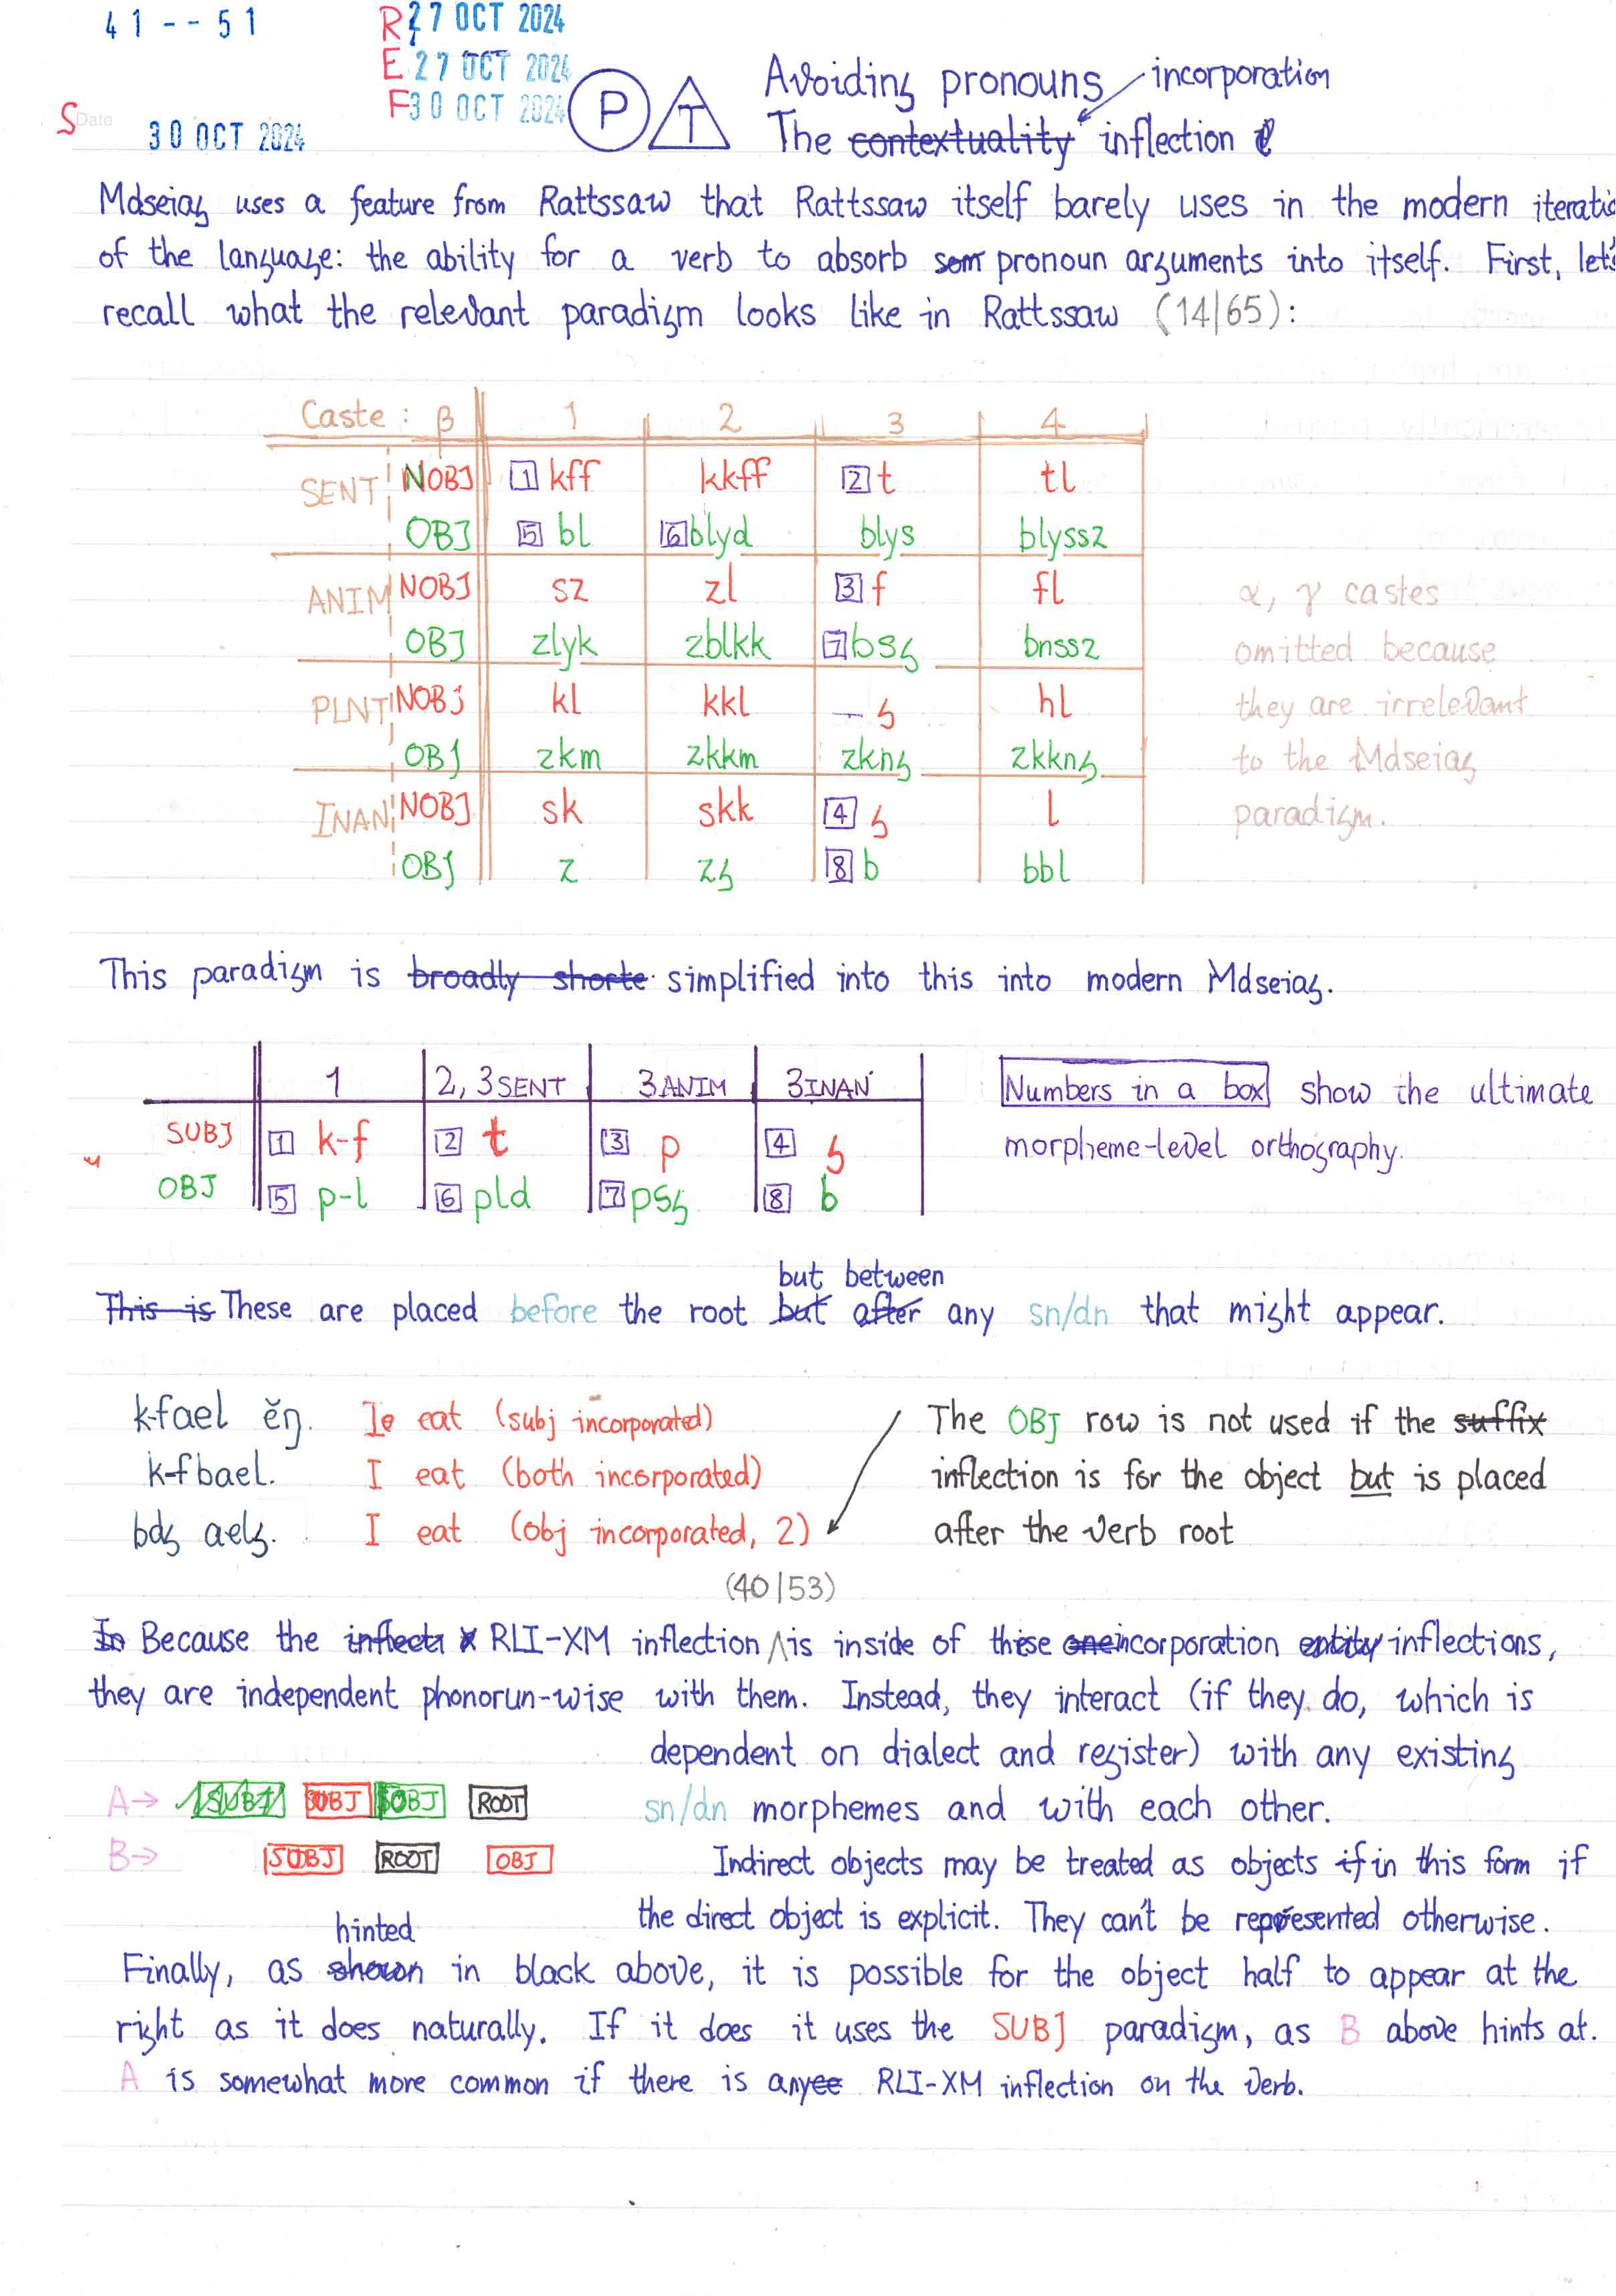 41--51
R 27 OCT 2024
E 27 OCT 2024
F 30 OCT 2024
S Date 30 OCT 2024
P T
Avoiding pronouns
incorporation
The contextuality inflection
Mdseiag uses a feature from Rattssaw that Rattssaw itself barely uses in the modern iteratio
of the language: the ability for a verb to absorb som pronoun arguments into itself. First, let's
recall what the relevant paradigm looks like in Rattssaw (14/65):
Caste: β 1 2 3 4
SENT NOBJ 1 kff kkff 2 t tl
OBJ 5 bl 6 blyd blys blyssz
ANIM NOBJ sz zl 3 f fl
OBJ zlyk zblkk 7 bsg bnssz
PLNT NOBJ kl kkl – g hl
OBJ zkm zkkm zkng zkkng
INAN NOBJ sk skk 4 g l
OBJ z zg 8 b bbl
α, γ castes
omitted because
they are irrelevant
to the Mdseiag
paradigm.
This paradigm is broadly shorte simplified into this into modern Mdseiag.
1 2, 3SENT 3ANIM 3INAN
SUBJ 1 k-f 2 t 3 p 4 g
OBJ 5 p-l 6 pld 7 psg 8 b
Numbers in a box show the ultimate
morpheme-level orthography.
but between
This is These are placed before the root but after any sn/dn that might appear.
k-fael ĕŋ. I eat (subj incorporated)
k-fbael. I eat (both incorporated)
bdg aelg. I eat (obj incorporated, 2)
The OBJ row is not used if the suffix
inflection is for the object but is placed
after the verb root
(40/53)
In Because the inflecti RLI-XM inflection is inside of these one incorporation entity inflections,
they are independent phonorun-wise with them. Instead, they interact (if they do, which is
dependent on dialect and register) with any existing
sn/dn morphemes and with each other.
A→ SUBJ SUBJ OBJ ROOT
B→ SUBJ ROOT OBJ
Indirect objects may be treated as objects if in this form if
the direct object is explicit. They can't be represented otherwise.
hinted
Finally, as shown in black above, it is possible for the object half to appear at the
right as it does naturally. If it does it uses the SUBJ paradigm, as B above hints at.
A is somewhat more common if there is any RLI-XM inflection on the verb.